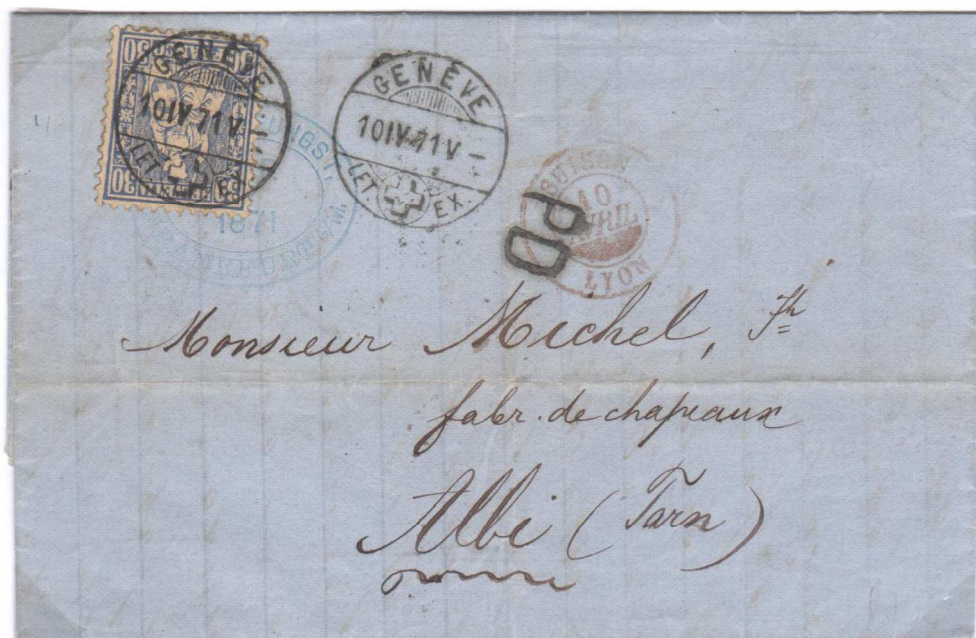 GENÈVE
10 IV 71 V
LET. EX.
30
30
GENÈVE
10 IV 71 V
LET. EX.
SUISSE
10
AVRIL
LYON
PD
1871
Monsieur Michel, Jh
fabr. de chapeaux
Albi (Tarn)